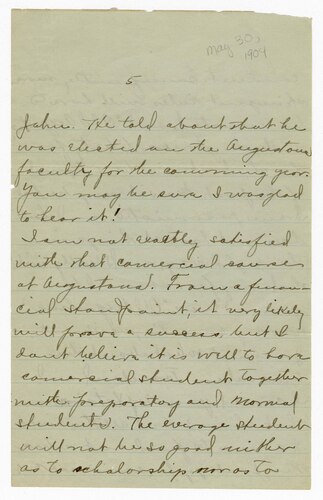 May 30,
1904
5
John. He told about that he
was elected on the Augustana
faculty for the comming year.
You may be sure I was glad
to hear it!
I am not exactly satisfied
with that comercial course
at Augustana. From a finan-
cial standpoint, it very likely
will prove a success, but I
don't believe it is well to have
comercial students together
with preparatory and normal
students. The everage student
will not be so good neither
as to scholarship nor as to